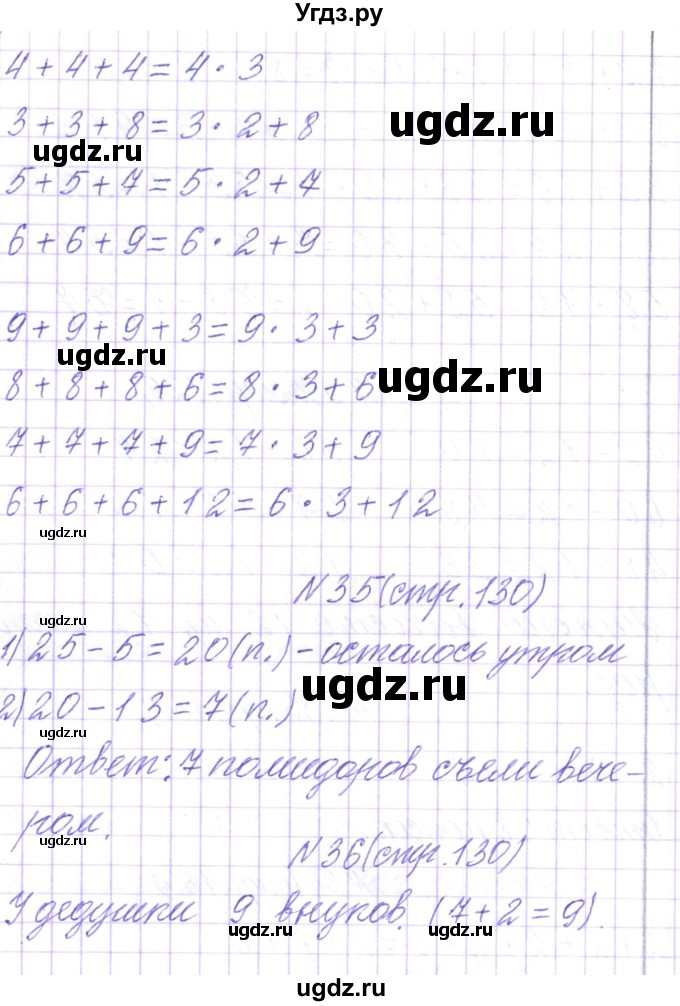 Угдз.ру
4 + 4 + 4 = 4 · 3
3 + 3 + 8 = 3 · 2 + 8
ugdz.ru
ugdz.ru
5 + 5 + 7 = 5 · 2 + 7
6 + 6 + 9 = 6 · 2 + 9
9 + 9 + 9 + 3 = 9 · 3 + 3
ugdz.ru
ugdz.ru
8 + 8 + 8 + 6 = 8 · 3 + 6
7 + 7 + 7 + 9 = 7 · 3 + 9
6 + 6 + 6 + 12 = 6 · 3 + 12
ugdz.ru
N 35 (стр. 130)
ugdz.ru
1) 25 - 5 = 20 (п.) - осталось утром
ugdz.ru
2) 20 - 13 = 7 (п.)
ugdz.ru
Ответ: 7 помидоров съели вече-
ром.
ugdz.ru
N 36 (стр. 130)
У дедушки 9 внуков. (7 + 2 = 9).
ugdz.ru
ugdz.ru
ugdz.ru
ugdz.ru